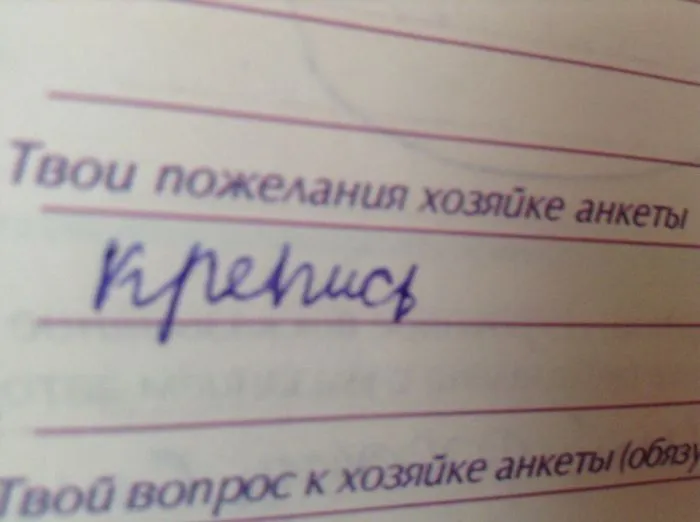 Твои пожелания хозяйке анкеты
крепись
Твой вопрос к хозяйке анкеты (обязу